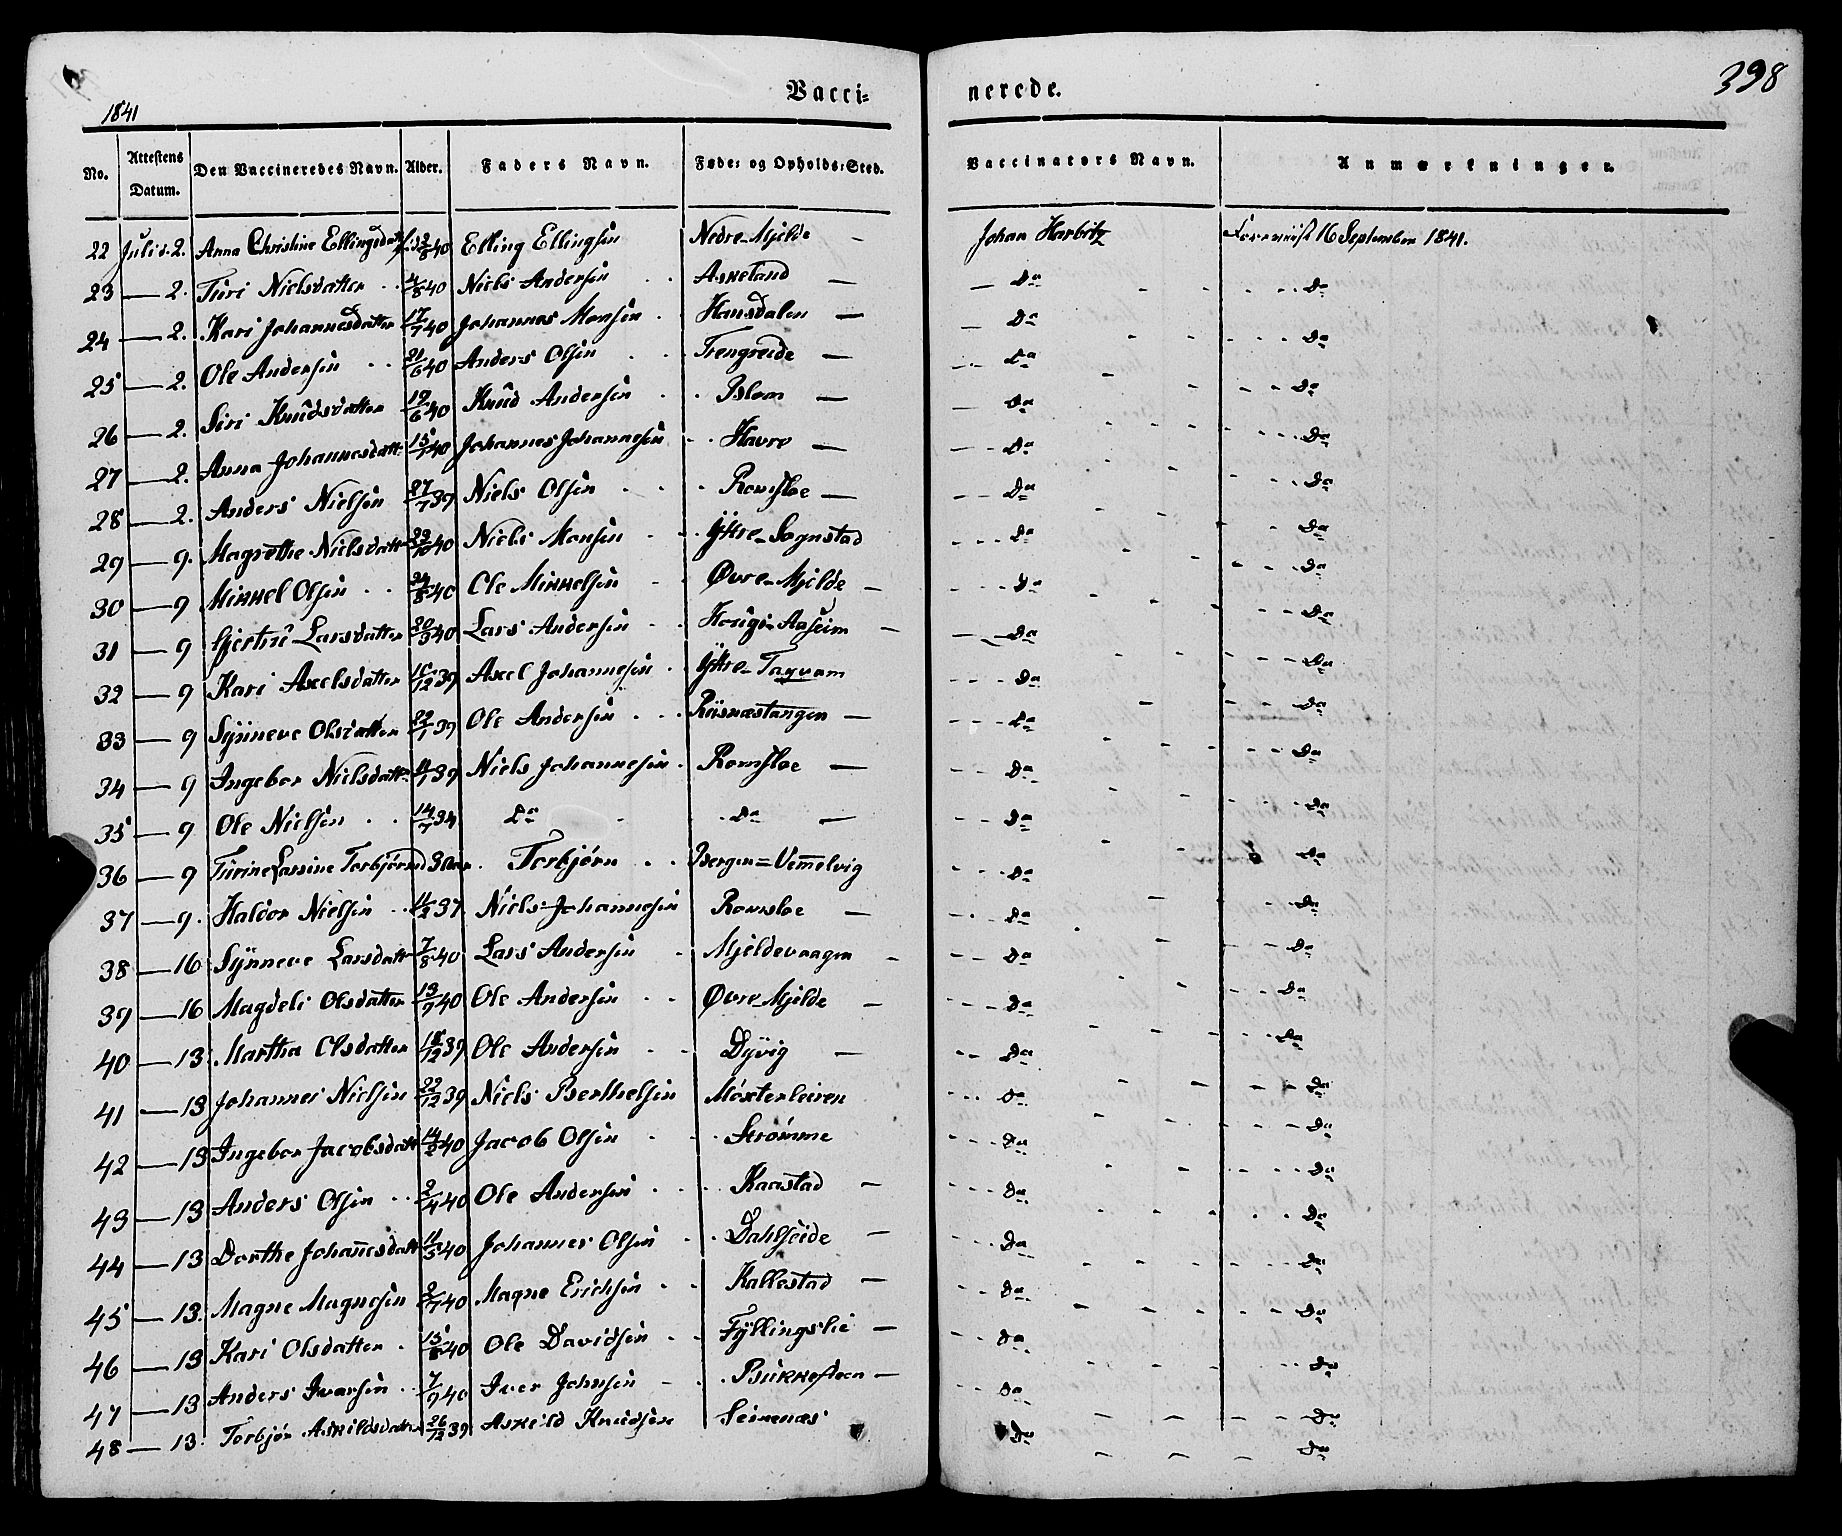 398
1841
Vacci= nerede.
No. Attestens Datum. Den Vaccineredes Navn. Alder. Faders Navn. Føde= og Opholds=Sted. Vaccinators Navn. Anmærkninger.
22 Juli d. 2. Anna Christine Ellingsdatt 2/8 40 Elling Ellingsen Nedre Mjelde — Johan Harbitz Foreviist 16 September 1841.
23 — 2. Turi Nielsdatter 4/8 40 Niels Andersen Askeland — Do Do
24 — 2. Kari Johannesdatter 17/7 40 Johannes Monsen Hansdalen — Do Do
25 — 2. Ole Andersen 21/6 40 Anders Olsen Trengreide — Do Do
26 — 2. Siri Knudsdatter 19/6 40 Knud Andersen Blom — Do Do
27 — 2. Anna Johannesdatt 15/7 40 Johannes Johannesen Havre — Do Do
28 — 2. Anders Nielsen 27/7 39 Niels Olsen Romsloe — Do Do
29 — 9. Magrethe Nielsdatter 29/10 40 Niels Monsen Ytre Sognstad Do Do
30 — 9 Mikkel Olsen 24/8 40 Ole Mikkelsen Øvre Mjelde — Do Do
31 — 9 Gjertrú Larsdatter 20/3 40 Lars Andersen Houge Aaseim — Do Do
32 — 9 Kari Axelsdatter 15/12 39 Axel Johannesen Ytre Taqvam Do Do
33 — 9 Synneve Olsdatter 22/1 39 Ole Andersen Risnæstangen — Do Do
34 — 9 Ingebor Nielsdatter 11/7 39 Niels Johannesen Romsloe — Do Do
35 — 9 Ole Nielsen 14/7 34 Do Do — Do Do
36 — 9 Turine Lassine Torbjørnd 30 Torbjørn Bergen = Vemmelvig Do Do
37 — 9. Haldor Nielsen 11/2 37 Niels Johannesen Romsloe — Do Do
38 — 16 Synneve Larsdatt 7/8 40 Lars Andersen Mjeldevaagen — Do Do
39 — 16 Magdeli Olsdatter 13/9 40 Ole Andersen Øvre Mjelde — Do Do
40 — 13. Martha Olsdatter 18/12 39 Ole Andersen Dyvig — Do Do
41 — 13 Johannes Nielsen 22/12 39 Niels Berthelsen Moxterleiren Do Do
42 — 13 Ingebor Jacobsdatt 14/2 40 Jacob Olsen Strømme Do Do
43 — 13 Anders Olsen 2/4 40 Ole Andersen Kaastad — Do Do
44 — 13 Dorthe Johannesdatt 11/5 40 Johannes Olsen Dahlseide — Do Do
45 — 13. Magne Magnesen 2/7 40 Magne Erichsen Kallestad — Do Do
46 — 13 Kari Olsdatter 15/8 40 Ole Davidsen Fyllingslie — Do Do
47 — 13 Anders Ivarsen 7/9 40 Iver Johnsen Bukkesteen — Do Do
48 — 13. Torbjør Askildsdatter 26/12 39 Askeild Knudsen Seimnæs Do Do